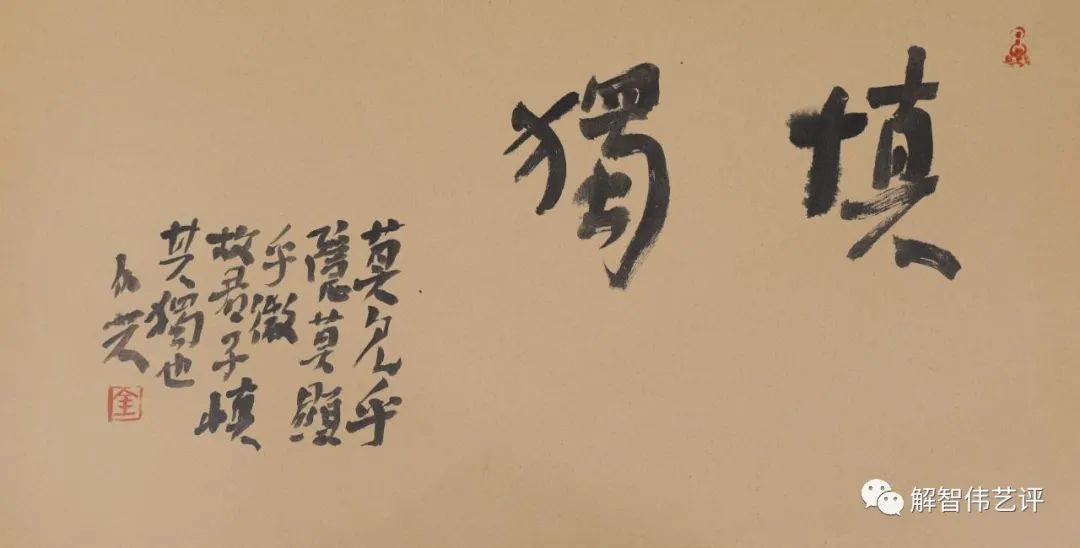 慎獨
莫見乎
隱莫顯
乎微
故君子慎
其獨也
解智伟艺评